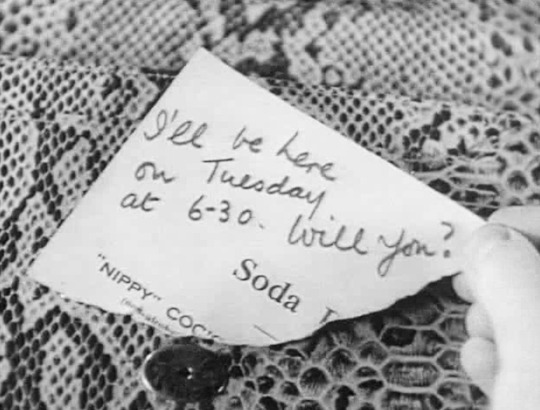 I'll be here
on Tuesday
at 6-30. Will you?
Soda
"NIPPY" COC